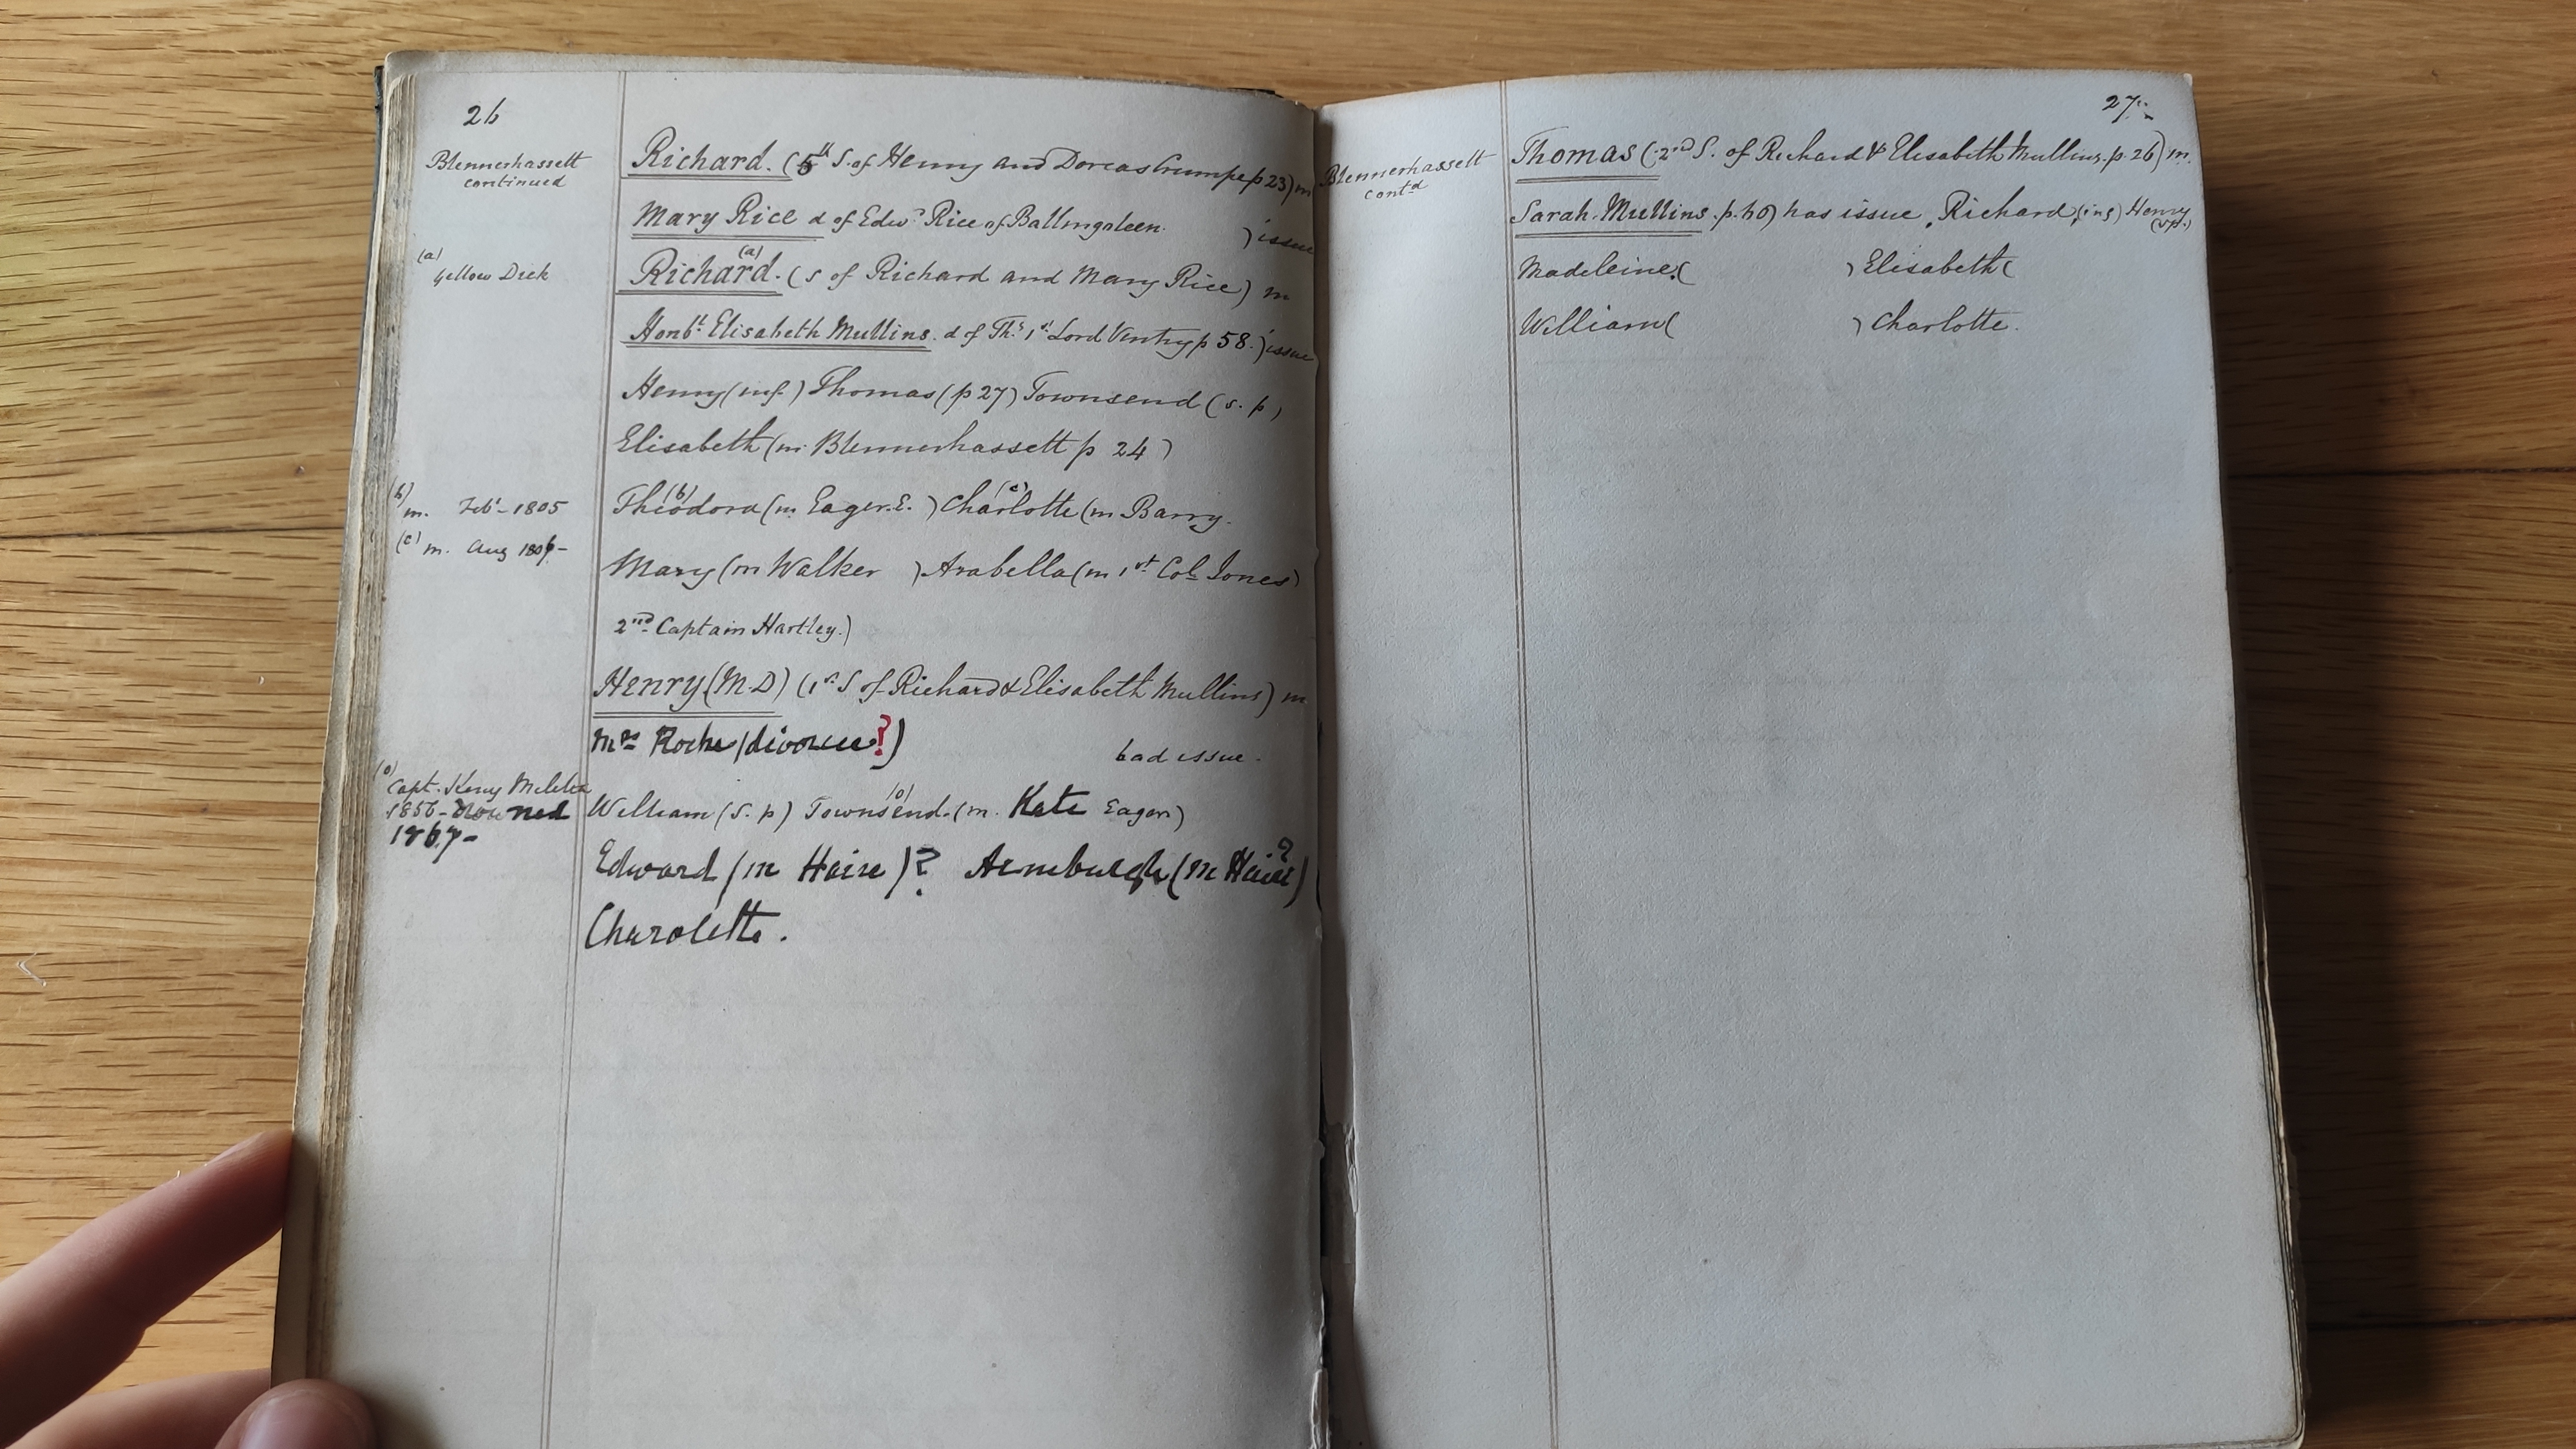 26
Blennerhassett
continued
Richard. (5th S. of Henry and Dorcas Crumpe p 23) m
Mary Rice d of Edwd Rice of Ballingoleen. ) issue
(a)
yellow Dick
Richard.(a) (s of Richard and Mary Rice) m
Honble Elisabeth Mullins. d of Ths 1st Lord Ventry p 58.) issue
Henry (inf.) Thomas (p 27) Townsend (s. p)
Elisabeth (m. Blennerhassett p 24)
(b) m. Feby - 1805
Theodora(b) (m. Eager. E. ) Charlotte(c) (m Barry.
(c) m. Aug 1806 -
Mary (m Walker ) Arabella (m 1st Col. Jones)
2nd Captain Hartley.)
Henry (M.D) (1st S of Richard & Elisabeth Mullins) m
Mrs Roche (divorcee?) had issue.
(o)
Capt. Kerry Militia
1856 - Drowned
1867 -
William (s. p) Townsend.(o) (m. Kate Eager)
Edward (m Haire)? Armburgh (m Haire?)
Charolette.
27.
Blennerhassett
contd
Thomas (2nd S. of Richard & Elisabeth Mullins. p. 26) m.
Sarah. Mullins. p. 60) has issue, Richard, (inf) Henry (s.p.)
Madeleine. ( ) Elisabeth (
William ( ) Charlotte.